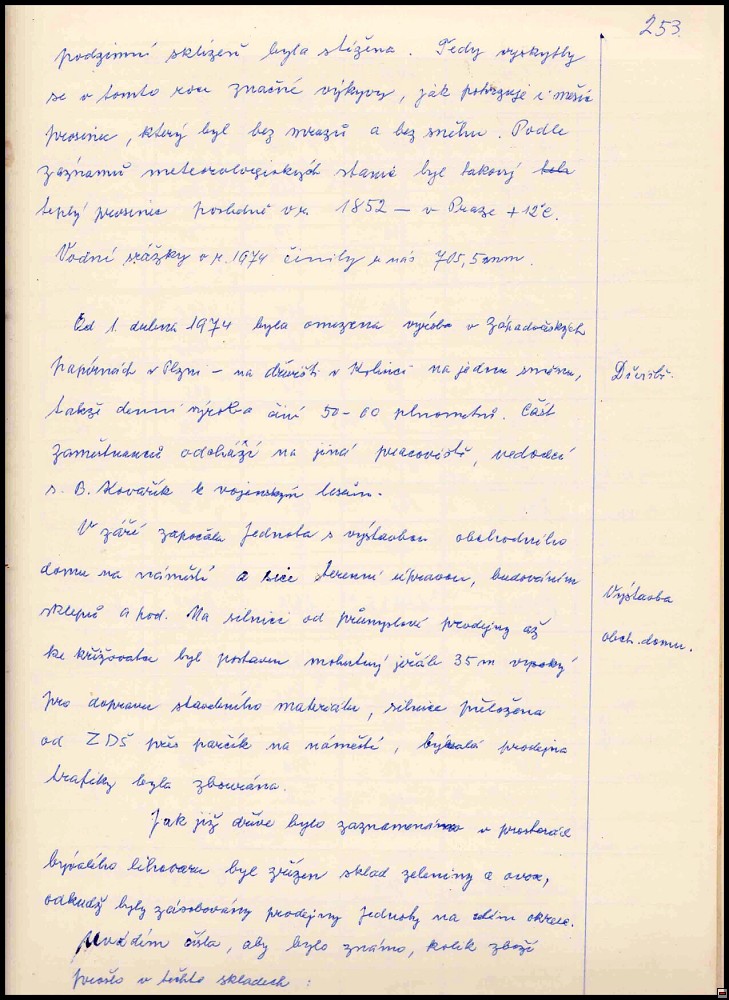 253.
podzimní sklizeň byla stížena. Tedy vyskytly
se v tomto roce značné výkyvy, jak potvrzuje i měsíc
prosinec, který byl bez mrazů a bez sněhu. Podle
záznamů meteorologických stanic byl takový
teplý prosinec posledně v r. 1852 – v Praze +12°C.
Vodní srážky v r. 1974 činily u nás 705,5 mm.
Od 1. dubna 1974 byla omezena výroba v Západočeských
papírnách v Plzni – na dřevišti v Kolinci na jednu směnu,
Dřeviště.
takže denní výroba činí 50-60 plnometrů. Část
zaměstnanců odchází na jiná pracoviště, vedoucí
s. B. Kovařík k vojenským lesům.
V září započala Jednota s výstavbou obchodního
domu na náměstí a sice terenní úpravou, budováním
Výstavba
sklepů a pod. Na silnici od průmyslové prodejny až
obch. domu.
ke křižovatce byl postaven mohutný jeřáb 35 m vysoký
pro dopravu stavebního materiálu, silnice přeložena
od ZDŠ přes parčík na náměstí, bývalá prodejna
trafiky byla zbourána.
Jak již dříve bylo zaznamenáno v prostorách
bývalého lihovaru byl zřízen sklad zeleniny a ovoce,
odkudž byly zásobovány prodejny Jednoty na okrese.
Uvádím čísla, aby bylo známo, kolik zboží
prošlo v těchto skladech: